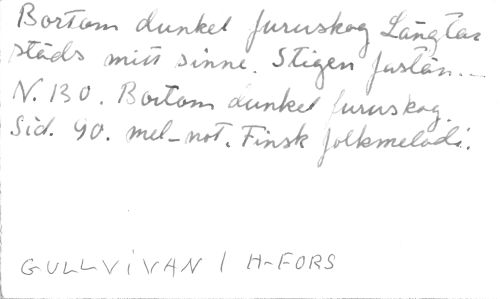 Bortom dunkel furuskog Längtar
städs mitt sinne. Stigen fastän...
N. 130. Bortom dunkel furuskog.
Sid. 90. mel-not. Finsk folkmelodi.
GULLVIVAN / H-FORS